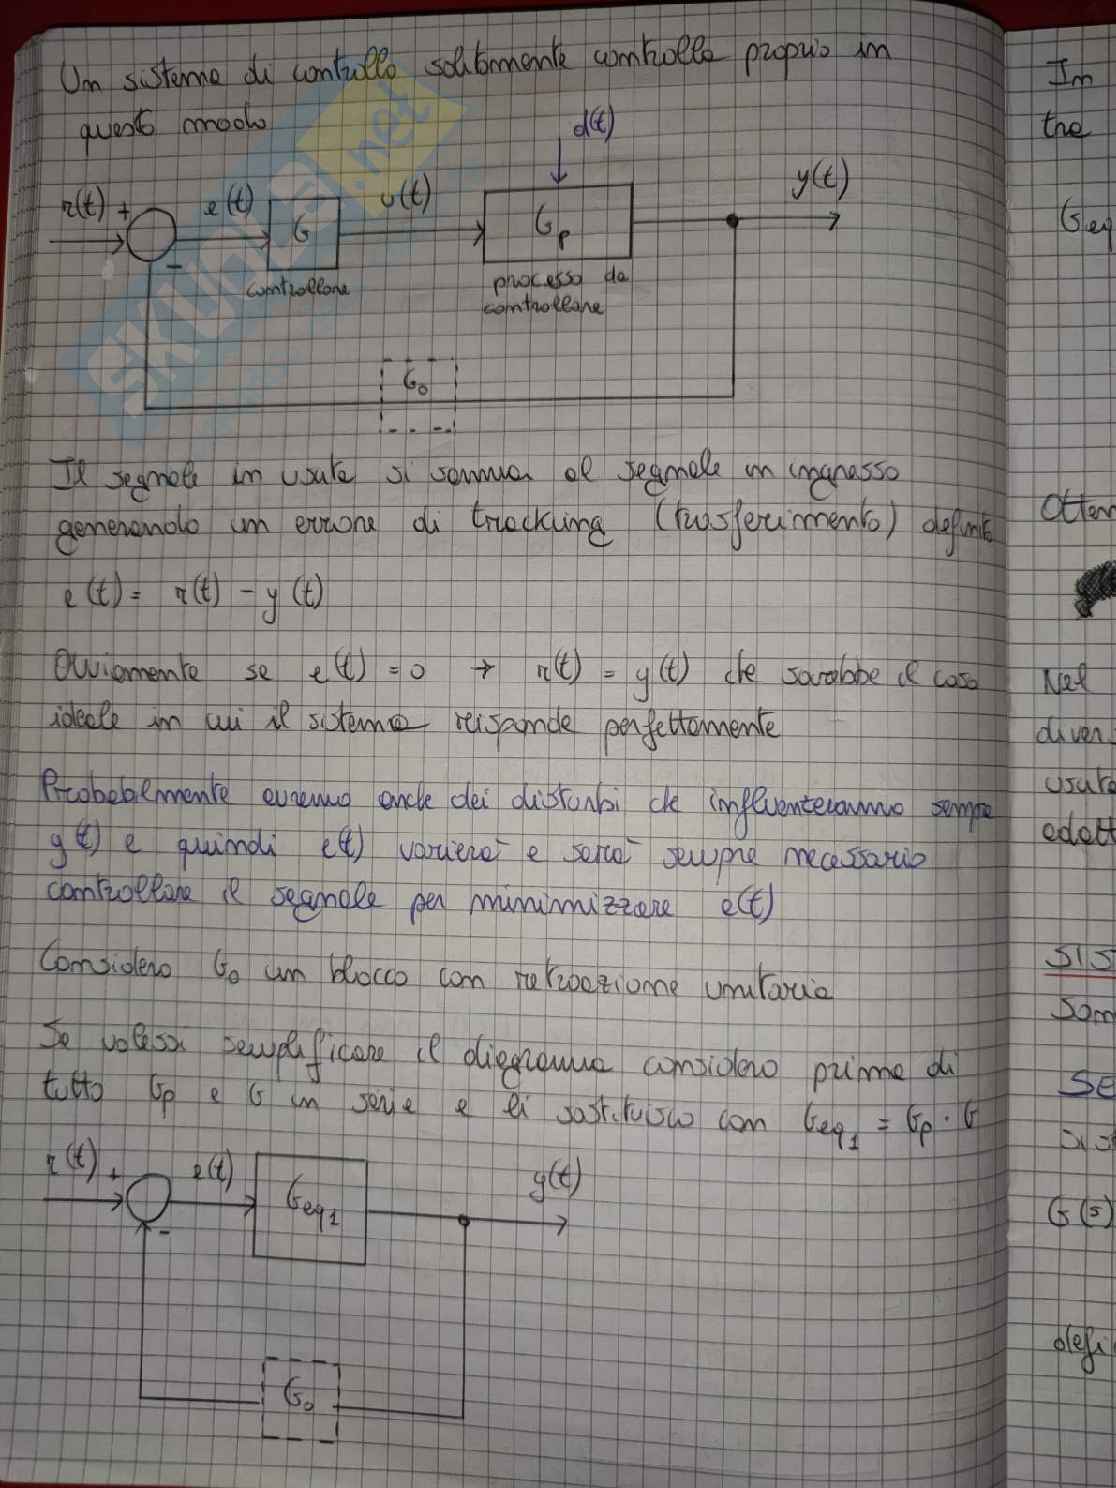 Un sistema di controllo solitamente controlla proprio in
questo modo
d(t)
r(t) + e(t) u(t) y(t)
G Gp
-
controllore processo da
controllare
G0
SKUOLA.net
Il segnale in uscita si somma al segnale in ingresso
generando un errore di tracking (trasferimento) definito
e(t) = r(t) - y(t)
Ovviamente se e(t) = 0 → r(t) = y(t) che sarebbe il caso
ideale in cui il sistema risponde perfettamente
Probabilmente avremo anche dei disturbi che influenzeranno sempre
y(t) e quindi e(t) varierà e sarà sempre necessario
controllare il segnale per minimizzare e(t)
Considero G0 un blocco con retroazione unitaria
Se volessi semplificare il diagramma considero prima di
tutto Gp e G in serie e li sostituisco con Geq1 = Gp · G
r(t) + e(t) Geq1 y(t)
-
G0
In
tre
Geq
Otten
Nel
divers
uscita
adott
SIS
Son
SE
sis
G(s)
defi